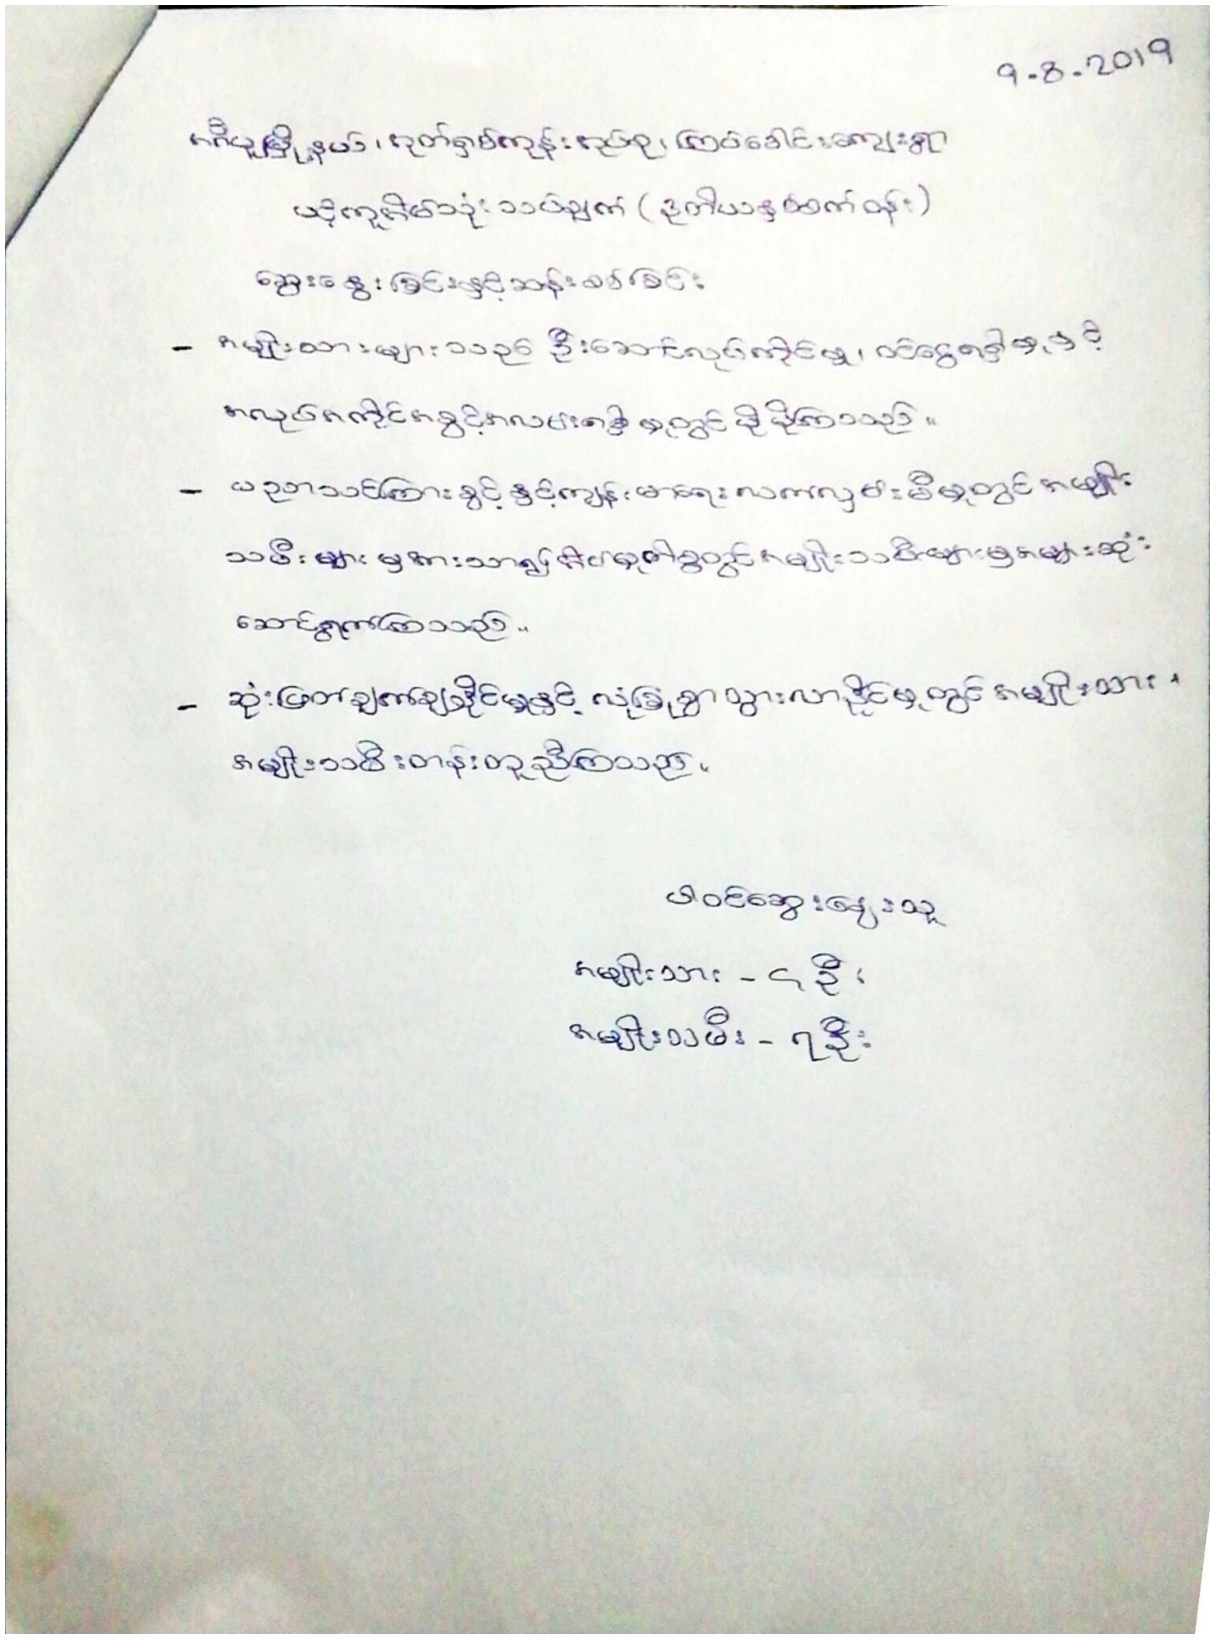 9.8.2019
မြို့နယ်၊ အုတ်ရှစ်ကုန်းအုပ်စု၊ ကြပ်ခေါင်းကျေးရွာ
သုံးသပ်ချက် (ဒုတိယနှစ်ဝက်ဝန်း)
ဆွေးနွေးခြင်းနှင့်ဆန်းစစ်ခြင်း
- အမျိုးသားများသည် ဦးဆောင်လုပ်ကိုင်မှု၊ ဝင်ငွေရရှိမှုနှင့်
အလုပ်အကိုင်အခွင့်အလမ်းရရှိမှုတွင် ပိုမိုကြသည်။
- ပညာသင်ကြားခွင့်နှင့်ကျန်းမာရေးလက်လှမ်းမီမှုတွင် အမျိုး
သမီးများမှအားသာ၍အိမ်မှုကိစ္စတွင်အမျိုးသမီးများမှအများဆုံး
ဆောင်ရွက်ကြသည်။
- ဆုံးဖြတ်ချက်ချနိုင်မှုနှင့် လုံခြုံစွာသွားလာနိုင်မှုတွင် အမျိုးသား၊
အမျိုးသမီးတန်းတူညီကြသည်။
ပါဝင်ဆွေးနွေးသူ
အမျိုးသား - ၎ ဦး
အမျိုးသမီး - ၇ ဦး